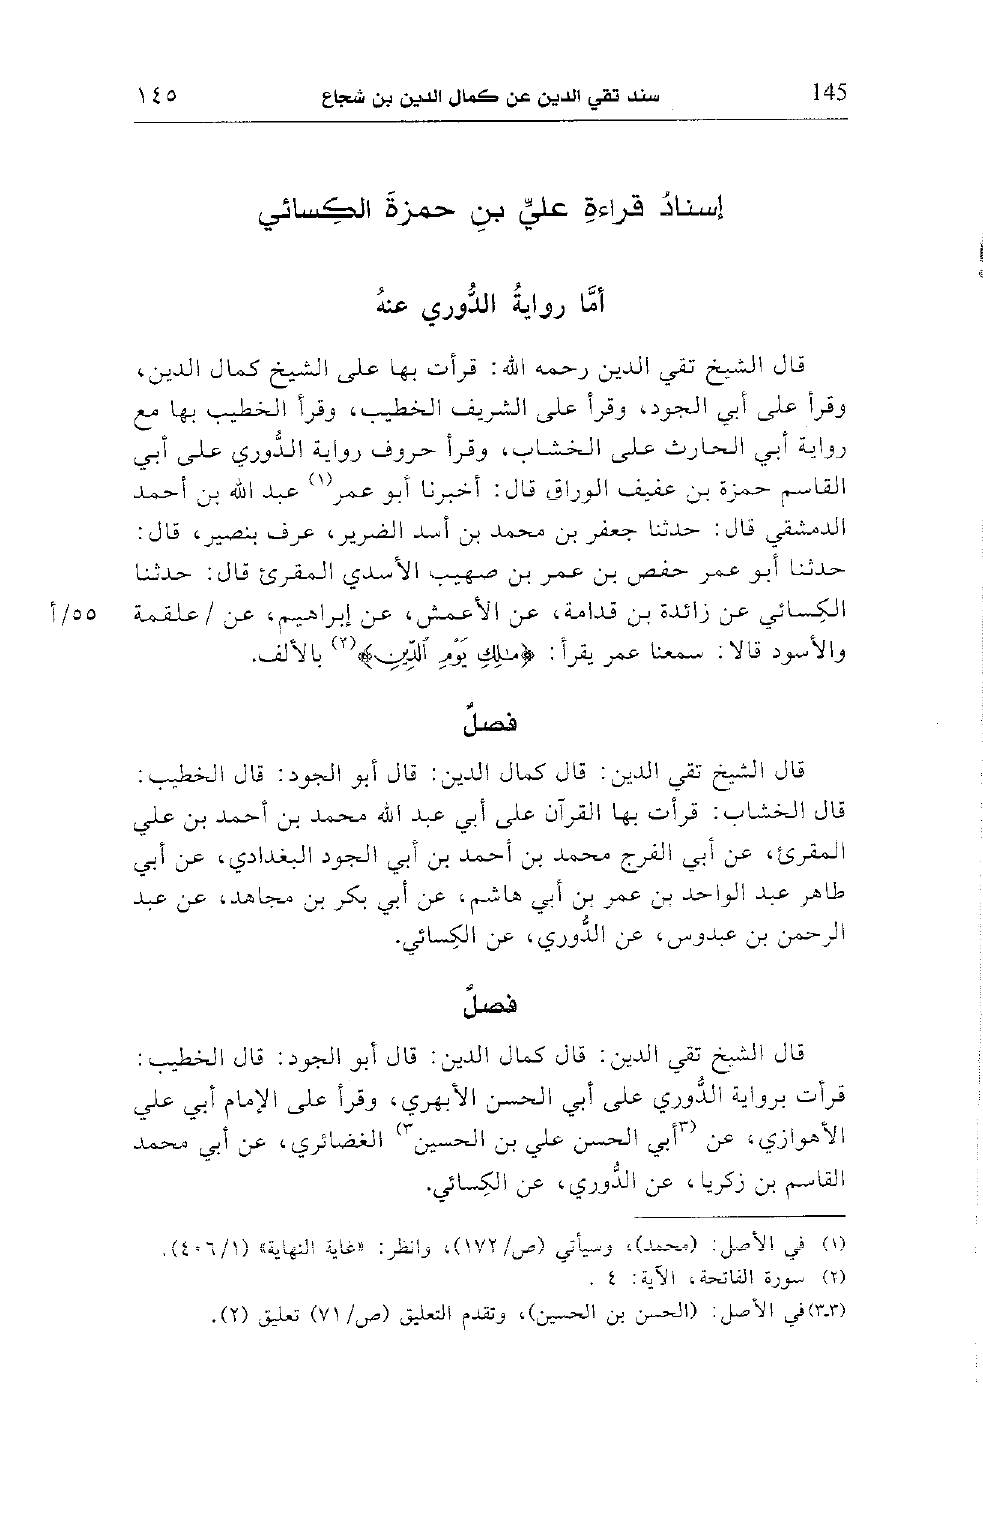 145 سند تقي الدين عن كمال الدين بن شجاع ١٤٥
إسنادُ قراءةِ عليِّ بنِ حمزةَ الكِسائي
أمَّا روايةُ الدُّوري عنهُ
قال الشيخ تقي الدين رحمه الله: قرأت بها على الشيخ كمال الدين،
وقرأ على أبي الجود، وقرأ على الشريف الخطيب، وقرأ الخطيب بها مع
رواية أبي الحارث على الخشاب، وقرأ حروف رواية الدُّوري على أبي
القاسم حمزة بن عفيف الوراق قال: أخبرنا أبو عمر(١) عبد الله بن أحمد
الدمشقي قال: حدثنا جعفر بن محمد بن أسد الضرير، عرف بنصير، قال:
حدثنا أبو عمر حفص بن عمر بن صهيب الأسدي المقرئ قال: حدثنا
الكِسائي عن زائدة بن قدامة، عن الأعمش، عن إبراهيم، عن / علقمة ٥٥/أ
والأسود قالا: سمعنا عمر يقرأ: ﴿مَٰلِكِ يَوْمِ ٱلدِّينِ﴾(٢) بالألف.
فصلٌ
قال الشيخ تقي الدين: قال كمال الدين: قال أبو الجود: قال الخطيب:
قال الخشاب: قرأت بها القرآن على أبي عبد الله محمد بن أحمد بن علي
المقرئ، عن أبي الفرج محمد بن أحمد بن أبي الجود البغدادي، عن أبي
طاهر عبد الواحد بن عمر بن أبي هاشم، عن أبي بكر بن مجاهد، عن عبد
الرحمن بن عبدوس، عن الدُّوري، عن الكِسائي.
فصلٌ
قال الشيخ تقي الدين: قال كمال الدين: قال أبو الجود: قال الخطيب:
قرأت برواية الدُّوري على أبي الحسن الأبهري، وقرأ على الإمام أبي علي
الأهوازي، عن (٣أبي الحسن علي بن الحسين٣) الغضائري، عن أبي محمد
القاسم بن زكريا، عن الدُّوري، عن الكِسائي.
(١) في الأصل: (محمد)، وسيأتي (ص/١٧٢)، وانظر: «غاية النهاية» (٤٠٦/١).
(٢) سورة الفاتحة، الآية: ٤ .
(٣-٣) في الأصل: (الحسن بن الحسين)، وتقدم التعليق (ص/٧١) تعليق (٢).